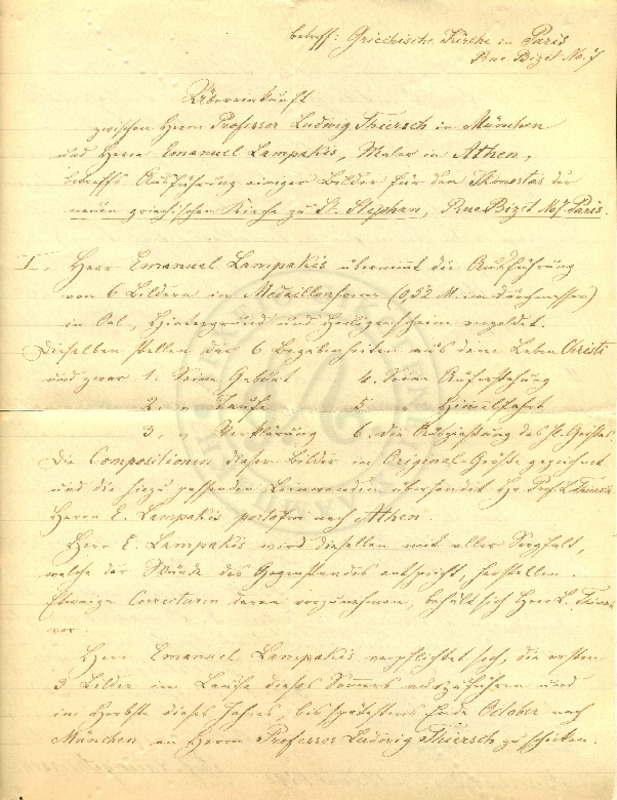 betreff: Griechische Kirche in Paris
Rue Bizet No. 7
Übereinkunft
zwischen Herrn Professor Ludwig Thiersch in München
und Herrn Emanuel Lampakis, Maler in Athen,
betreffs Ausführung einiger Bilder für den Ikonostas der
neuen griechischen Kirche zu St. Stephan, Rue Bizet No 7. Paris.
I. Herr Emanuel Lampakis übernimmt die Ausführung
von 6 Bildern in Medaillonform (0,52 M. im Durchmesser)
in Oel, Hintergrund und Heiligenschein vergoldet.
Dieselben stellen dar 6 Begebenheiten aus dem Leben Christi
und zwar 1. Seine Geburt 4. Seine Auferstehung
2. " Taufe 5. " Himmelfahrt
3. " Verklärung 6. die Ausgießung des hl. Geistes.
Die Compositionen dieser Bilder in Original-Größe gezeichnet
und die hiezu passenden Leinwanden übersendet Hr. Prof. L. Thiersch
Herrn E. Lampakis portofrei nach Athen.
Herr E. Lampakis wird dieselben mit aller Sorgfalt,
welche der Würde des Gegenstandes entspricht, herstellen.
Etwaige Correcturen daran vorzunehmen, behält sich Herr L. Thiersch
vor.
Herr Emanuel Lampakis verpflichtet sich, die ersten
3 Bilder im Laufe dieses Sommers auszuführen und
im Herbste dieses Jahres, bis spätestens Ende October nach
München an Herrn Professor Ludwig Thiersch zu schicken.